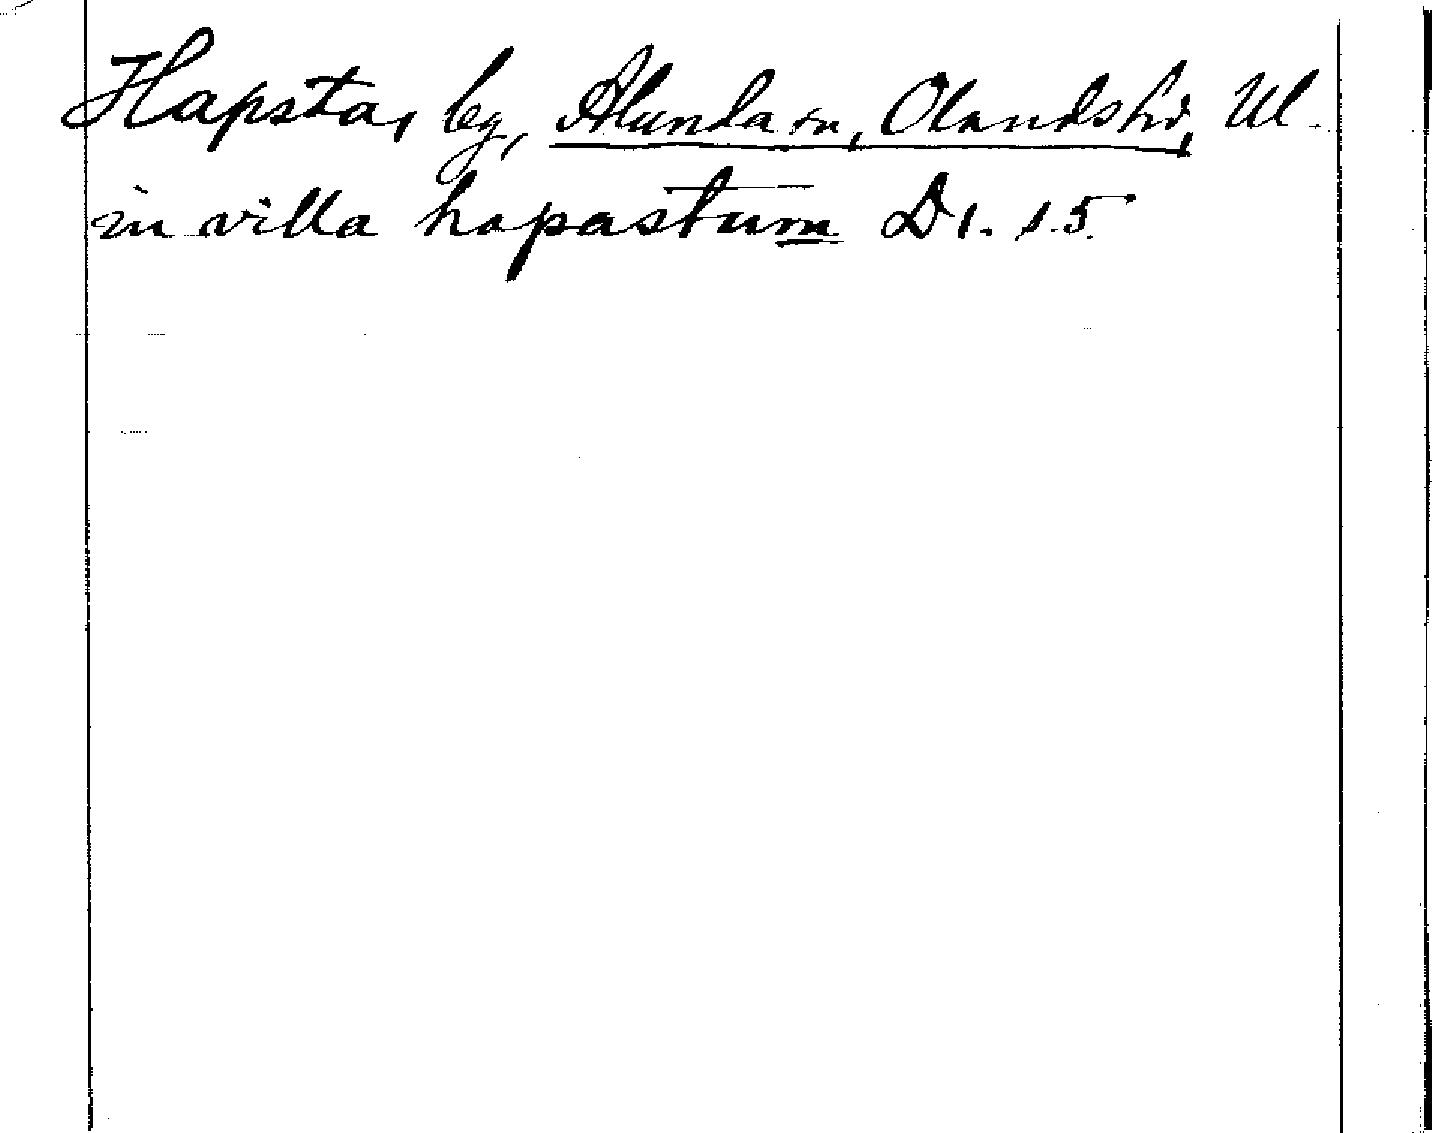 Hapsta, by, Alunda sn, Olandshd, Ul.
in villa hapastum D1. 1.5.